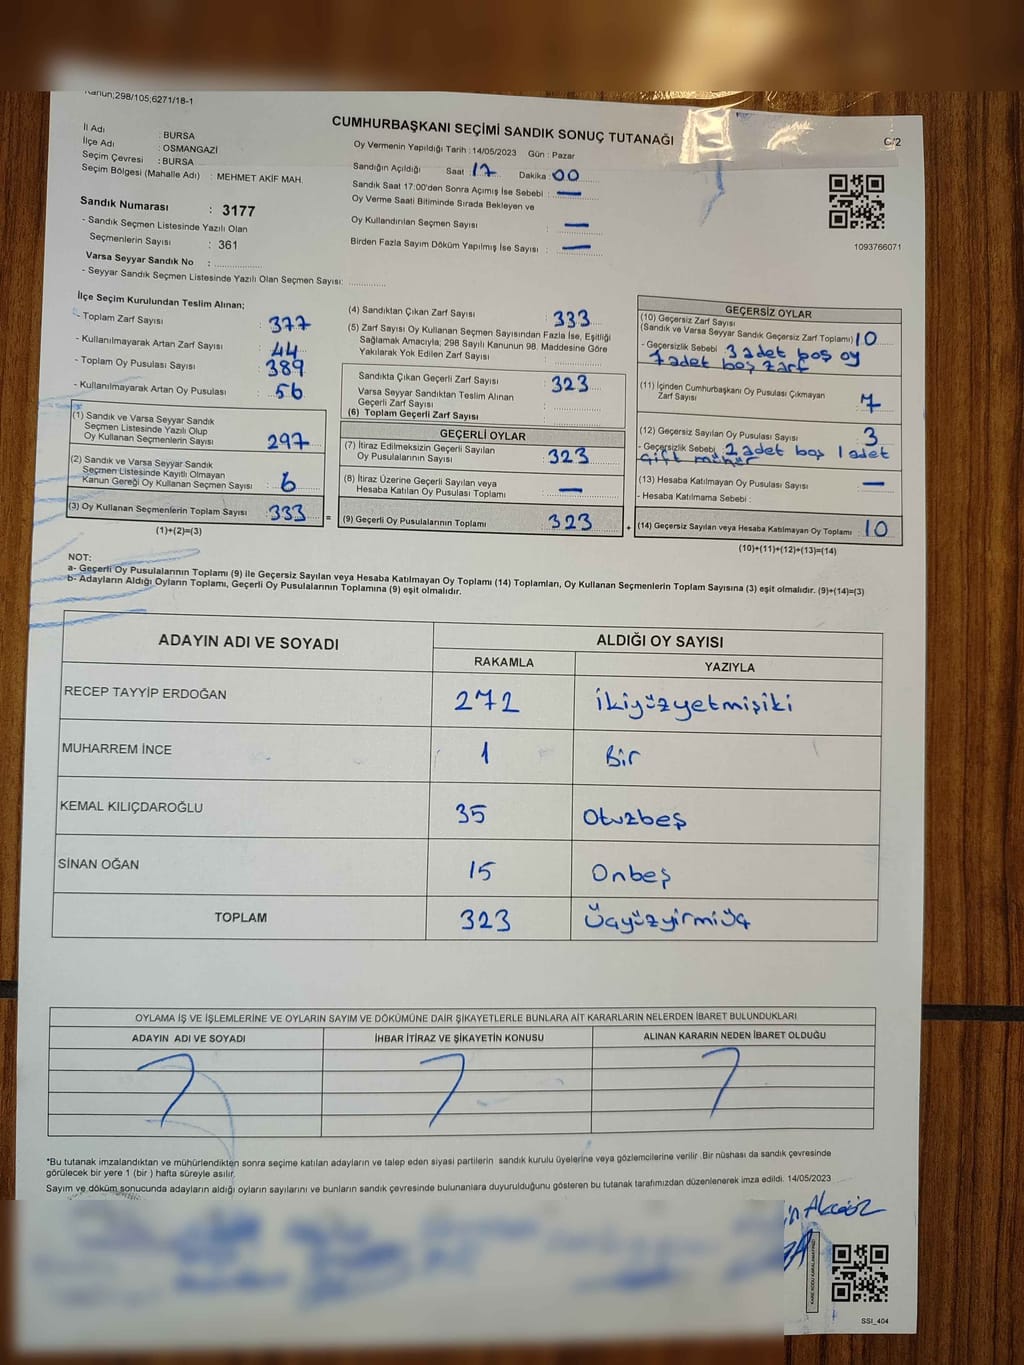 Kanun;298/105;6271/18-1
CUMHURBAŞKANI SEÇİMİ SANDIK SONUÇ TUTANAĞI
C/2
İl Adı : BURSA
İlçe Adı : OSMANGAZİ
Seçim Çevresi : BURSA
Seçim Bölgesi (Mahalle Adı) : MEHMET AKİF MAH.
Oy Vermenin Yapıldığı Tarih : 14/05/2023 Gün : Pazar
Sandığın Açıldığı Saat : 17 Dakika : 00
Sandık Saat 17:00'den Sonra Açımış İse Sebebi : —
Oy Verme Saati Bitiminde Sırada Bekleyen ve
Oy Kullandırılan Seçmen Sayısı : —
Birden Fazla Sayım Döküm Yapılmış İse Sayısı : —
1093766071
Sandık Numarası : 3177
- Sandık Seçmen Listesinde Yazılı Olan
Seçmenlerin Sayısı : 361
Varsa Seyyar Sandık No :
- Seyyar Sandık Seçmen Listesinde Yazılı Olan Seçmen Sayısı:
İlçe Seçim Kurulundan Teslim Alınan;
- Toplam Zarf Sayısı : 377
- Kullanılmayarak Artan Zarf Sayısı : 44
- Toplam Oy Pusulası Sayısı : 389
- Kullanılmayarak Artan Oy Pusulası : 56
(1) Sandık ve Varsa Seyyar Sandık
Seçmen Listesinde Yazılı Olup
Oy Kullanan Seçmenlerin Sayısı : 297
(2) Sandık ve Varsa Seyyar Sandık
Seçmen Listesinde Kayıtlı Olmayan
Kanun Gereği Oy Kullanan Seçmen Sayısı : 6
(3) Oy Kullanan Seçmenlerin Toplam Sayısı : 333
(1)+(2)=(3)
(4) Sandıktan Çıkan Zarf Sayısı : 333
(5) Zarf Sayısı Oy Kullanan Seçmen Sayısından Fazla İse, Eşitliği
Sağlamak Amacıyla; 298 Sayılı Kanunun 98. Maddesine Göre
Yakılarak Yok Edilen Zarf Sayısı :
Sandıkta Çıkan Geçerli Zarf Sayısı : 323
Varsa Seyyar Sandıktan Teslim Alınan
Geçerli Zarf Sayısı :
(6) Toplam Geçerli Zarf Sayısı :
GEÇERLİ OYLAR
(7) İtiraz Edilmeksizin Geçerli Sayılan
Oy Pusulalarının Sayısı : 323
(8) İtiraz Üzerine Geçerli Sayılan veya
Hesaba Katılan Oy Pusulası Toplamı : —
= (9) Geçerli Oy Pusulalarının Toplamı : 323
GEÇERSİZ OYLAR
(10) Geçersiz Zarf Sayısı
(Sandık ve Varsa Seyyar Sandık Geçersiz Zarf Toplamı) : 10
- Geçersizlik Sebebi 3 adet boş oy
7 adet boş zarf
(11) İçinden Cumhurbaşkanı Oy Pusulası Çıkmayan
Zarf Sayısı : 7
(12) Geçersiz Sayılan Oy Pusulası Sayısı : 3
- Geçersizlik Sebebi 2 adet boş 1 adet
çift mühür
(13) Hesaba Katılmayan Oy Pusulası Sayısı : —
- Hesaba Katılmama Sebebi :
+ (14) Geçersiz Sayılan veya Hesaba Katılmayan Oy Toplamı : 10
(10)+(11)+(12)+(13)=(14)
NOT:
a- Geçerli Oy Pusulalarının Toplamı (9) ile Geçersiz Sayılan veya Hesaba Katılmayan Oy Toplamı (14) Toplamları, Oy Kullanan Seçmenlerin Toplam Sayısına (3) eşit olmalıdır. (9)+(14)=(3)
b- Adayların Aldığı Oyların Toplamı, Geçerli Oy Pusulalarının Toplamına (9) eşit olmalıdır.
ADAYIN ADI VE SOYADI ALDIĞI OY SAYISI
RAKAMLA YAZIYLA
RECEP TAYYİP ERDOĞAN 272 İkiyüzyetmişiki
MUHARREM İNCE 1 Bir
KEMAL KILIÇDAROĞLU 35 Otuzbeş
SİNAN OĞAN 15 Onbeş
TOPLAM 323 Üçyüzyirmiüç
OYLAMA İŞ VE İŞLEMLERİNE VE OYLARIN SAYIM VE DÖKÜMÜNE DAİR ŞİKAYETLERLE BUNLARA AİT KARARLARIN NELERDEN İBARET BULUNDUKLARI
ADAYIN ADI VE SOYADI İHBAR İTİRAZ VE ŞİKAYETİN KONUSU ALINAN KARARIN NEDEN İBARET OLDUĞU
*Bu tutanak imzalandıktan ve mühürlendikten sonra seçime katılan adayların ve talep eden siyasi partilerin sandık kurulu üyelerine veya gözlemcilerine verilir .Bir nüshası da sandık çevresinde
görülecek bir yere 1 (bir ) hafta süreyle asılır.
Sayım ve döküm sonucunda adayların aldığı oyların sayılarını ve bunların sandık çevresinde bulunanlara duyurulduğunu gösteren bu tutanak tarafımızdan düzenlenerek imza edildi. 14/05/2023
SSI_404